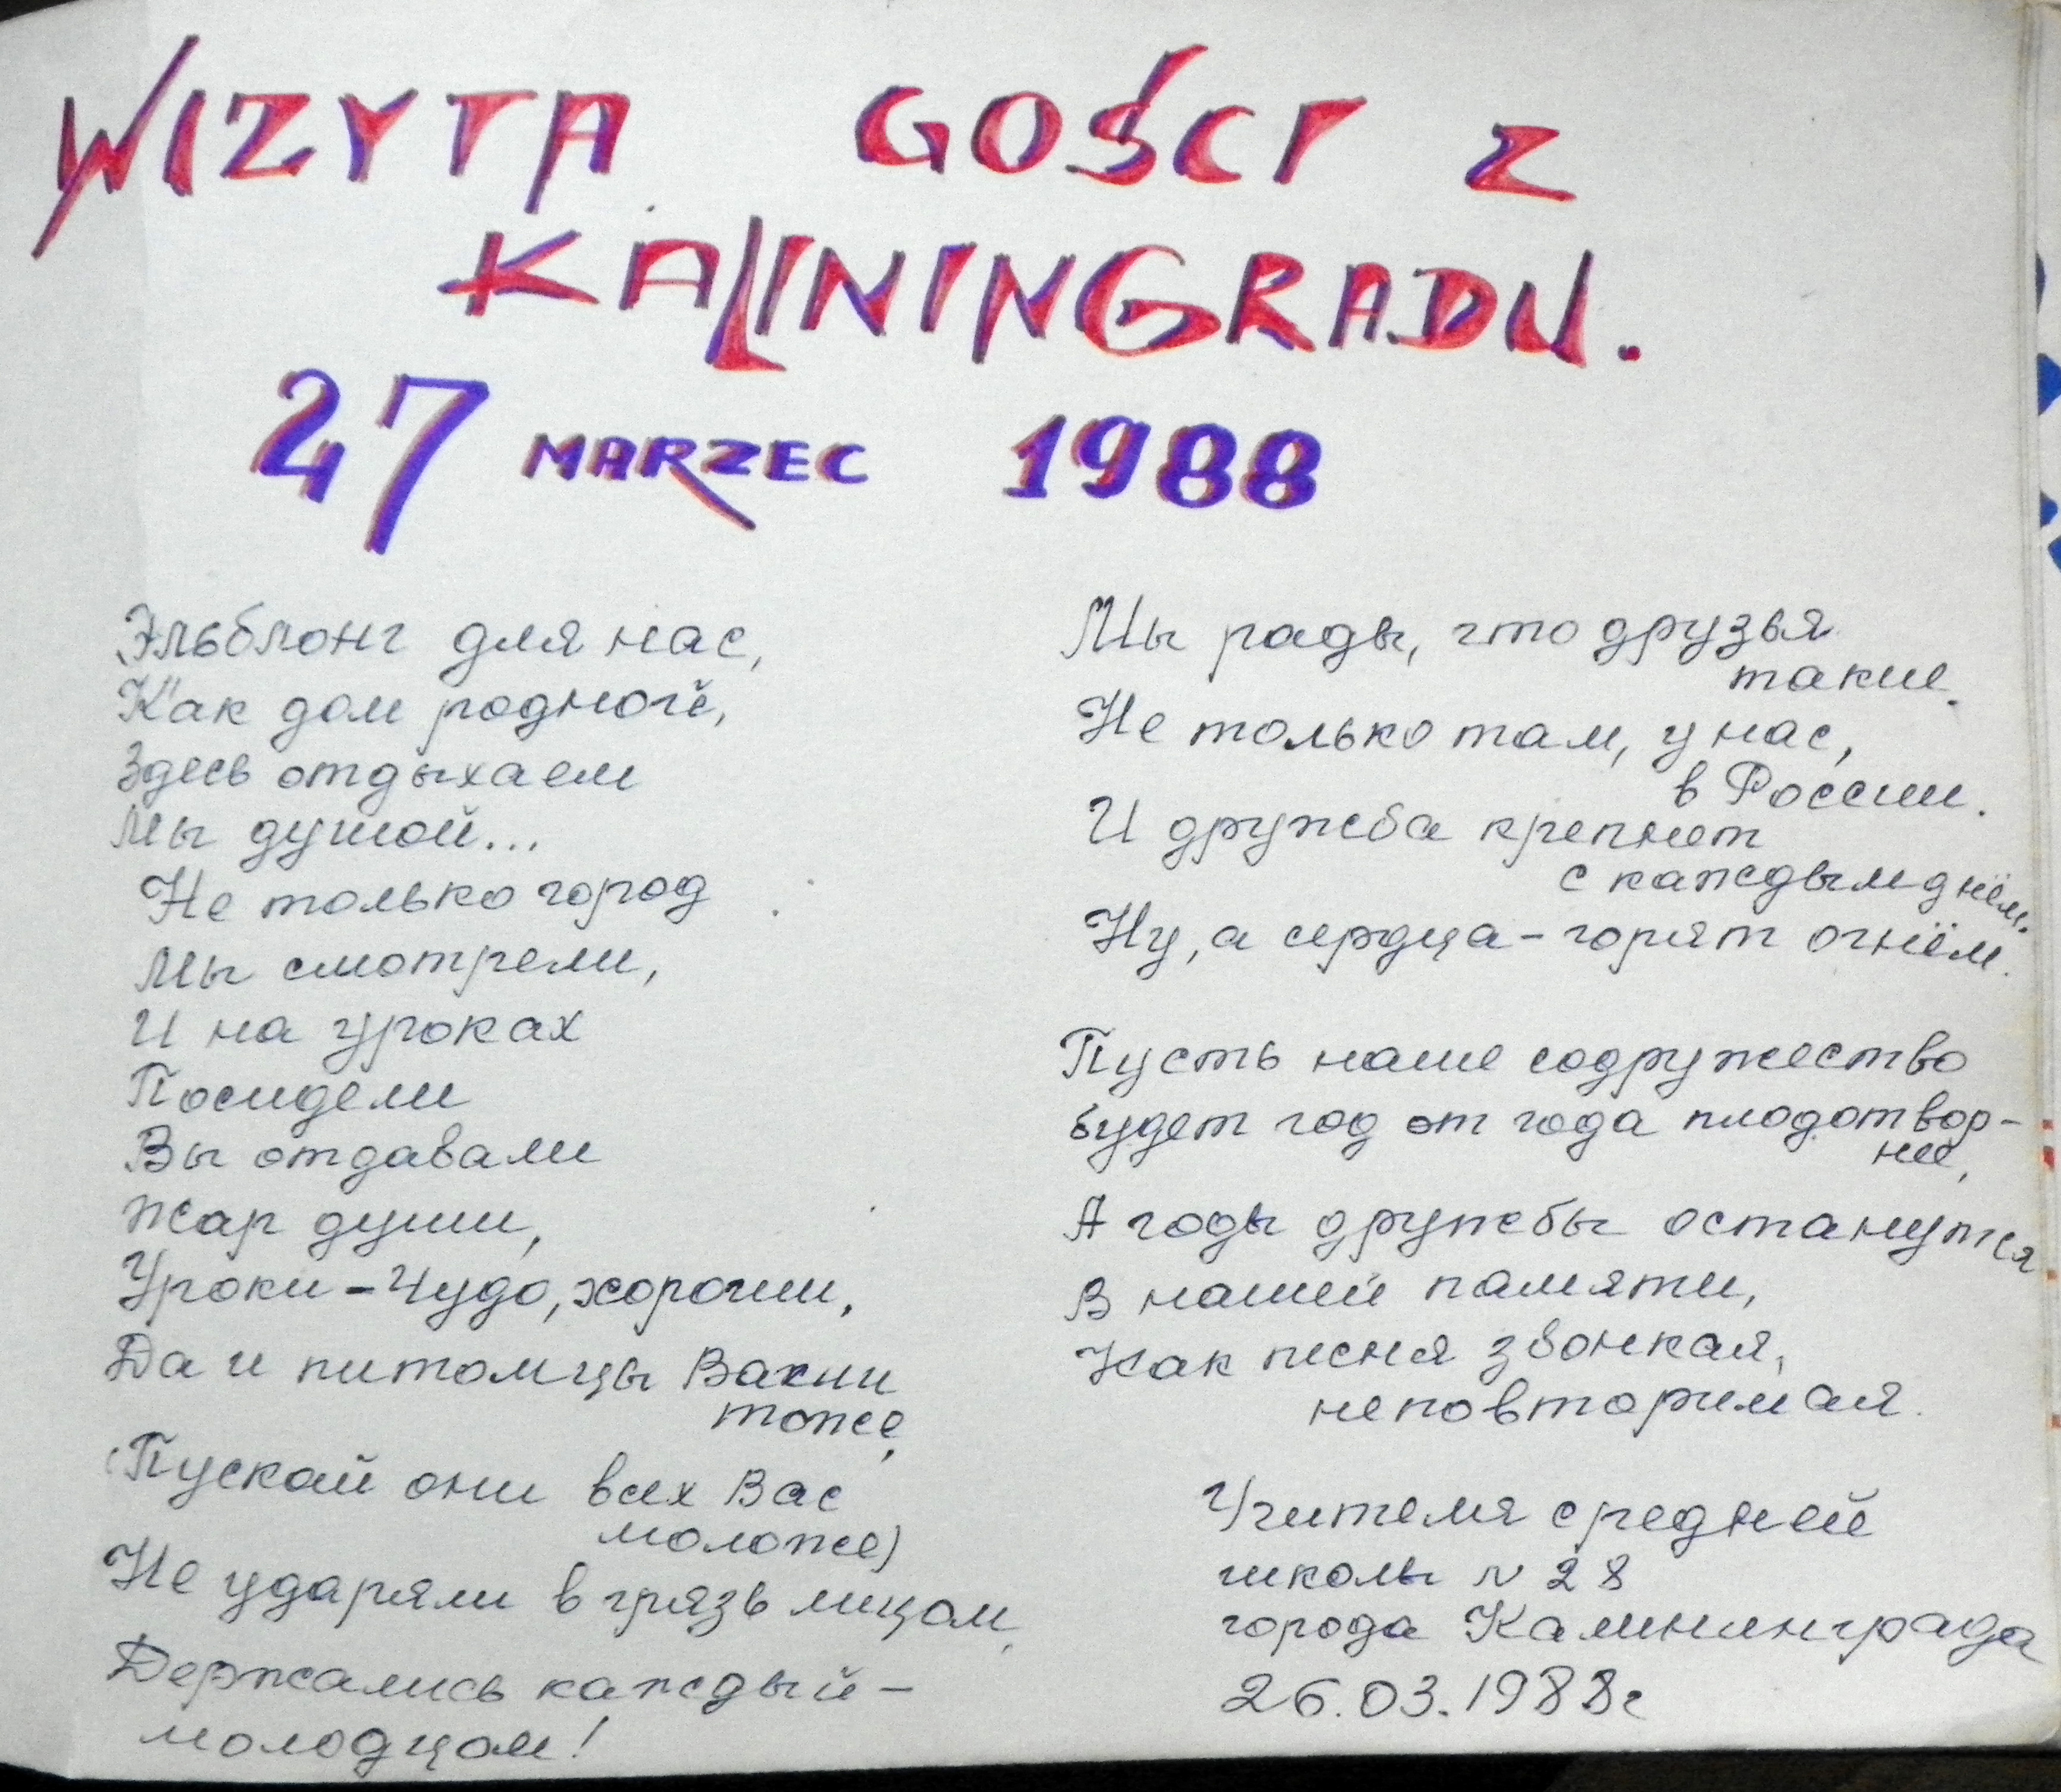 WIZYTA GOŚCI Z
KALININGRADU.
27 MARZEC 1988
Эльблонг для нас,
Как дом родной,
Здесь отдыхаем
Мы душой...
Не только город
Мы смотрели,
И на уроках
Посидели
Вы отдавали
Жар души,
Уроки - Чудо, хороши,
Да и питомцы Ваши
тоже,
(Пускай они всех Вас
моложе)
Не ударяли в грязь лицом,
Держались каждый -
молодцом!
Мы рады, что друзья
такие.
Не только там, у нас,
в России.
И дружба крепнет
с каждым днём.
Ну, а сердца - горят огнём.
Пусть наше содружество
будет год от года плодотвор-
нее,
А годы дружбы останутся
В нашей памяти,
Как песня звонкая,
неповторимая.
Учителя средней
школы N 28
города Калининграда
26.03.1988г